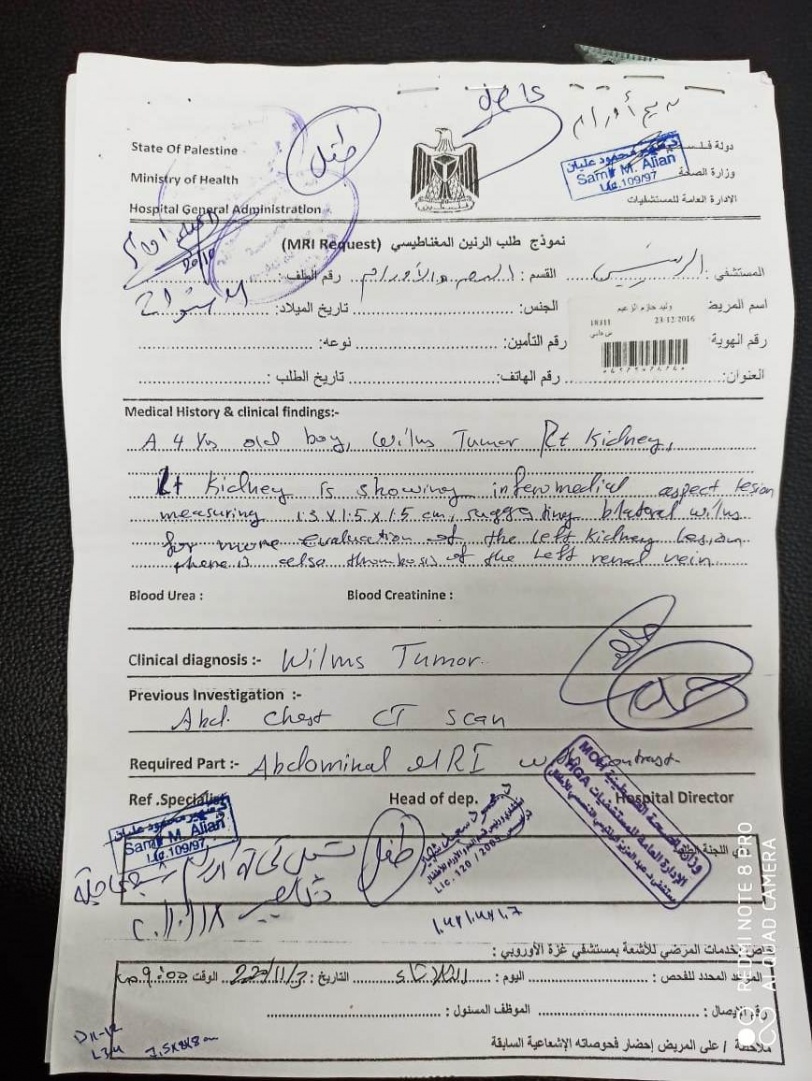 عاجل
أورام
طفل
State Of Palestine
Ministry of Health
Hospital General Administration
دولة فلسـ
وزارة الصحة
الإدارة العامة للمستشفيات
سمير محمود عليان
Samir M. Alian
Lic.109/97
فلسطين
نموذج طلب الرنين المغناطيسي (MRI Request)
المستشفى : القسم : الدم والأورام رقم الملف :
اسم المريض وليد حازم الزعيم الجنس: تاريخ الميلاد:
18311 23-12-2016
رقم الهوية رقم التأمين: نوعه:
العنوان: رقم الهاتف: تاريخ الطلب :
Medical History & clinical findings:-
A 4 Yrs old boy, Wilms Tumor Rt Kidney,
Lt Kidney is showing inferomedial aspect lesion
measuring 1.3 x 1.5 x 1.5 cm, suggesting bilateral wilms
for more evaluation of the left kidney lesion
there is also thrombosis of the left renal vein
Blood Urea : Blood Creatinine :
Clinical diagnosis :- Wilms Tumor
Previous Investigation :-
Abd. Chest CT scan
Required Part :- Abdominal MRI with contrast
Ref .Specialist Head of dep. Hospital Director
سمير محمود عليان
Samir M. Alian
Lic.109/97
طفل
Lic. 120 / 2003
وزارة الصحة الفلسطينية MOH
الإدارة العامة للمستشفيات HGA
1.4x1.4x1.7
خاص بخدمات المرضي للأشعة بمستشفى غزة الأوروبي :
الموعد المحدد للفحص : اليوم : الثلاثاء التاريخ : الوقت 9:00 ص
رقم الإيصال : الموظف المسئول :
ملاحظة / على المريض إحضار فحوصاته الإشعاعية السابقة
7.5x8x8cm
REDMI NOTE 8 PRO
AI QUAD CAMERA